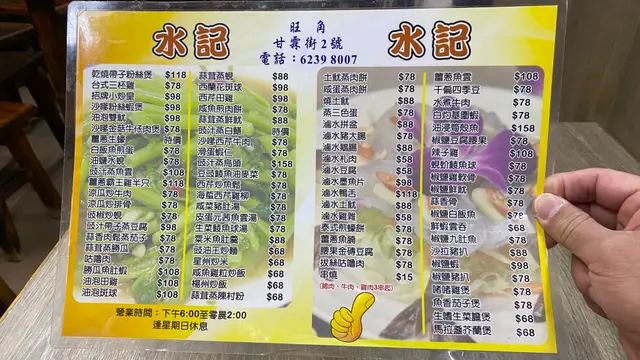 水記
旺 角
甘霖街2號
電話：6239 8007
水記
乾燒帶子粉絲煲 $118
台式三杯雞 $78
招牌小炒皇 $98
沙嗲粉絲蝦煲 $98
油泡雙魷 $98
沙嗲金菇牛仔肉煲 $78
薑蔥生蠔 時價
白胺魚煎蛋 $78
油鹽水蜆 $78
豉汁蒸魚雲 $108
薑蔥霸王雞半只 $118
涼瓜炒牛肉 $78
涼瓜炒排骨 $78
豉椒炒蜆 $78
豉汁帶子蒸豆腐 $98
蒜香肉鬆蒸茄子 $78
蒜茸蒸勝瓜 $78
咕嚕肉 $78
勝瓜魚肚蝦 $108
油泡田雞 $108
油泡斑球 $108
蒜茸蒸蜆 $88
西蘭花斑球 $98
西芹田雞 $98
咸魚煎肉餅 $78
蒜茸蒸鮮魷 $88
豉汁蒸白鱔 時價
沙嗲西芹牛肉 $78
滑蛋蝦仁 $78
豉汁蒸烏頭 $158
豆豉鯪魚油麥菜 $78
西芹炒魚鬆 $78
海蜇西芹雞柳 $78
咸菜豬肚湯 $78
皮蛋元茜魚雲湯 $78
生菜鯪魚球湯 $78
粟米魚肚羹 $88
豉油王炒麵 $68
星州炒米 $68
咸魚雞粒炒飯 $68
楊州炒飯 $68
蒜茸蒸陳村粉 $68
土魷蒸肉餅 $78
咸蛋蒸肉餅 $78
燒土魷 $88
蒸三色蛋 $78
滷水拼盆 $78
滷水豬大腸 $78
滷水鵝腸 $88
滷水札肉 $58
滷水豆腐 $58
滷水墨魚片 $98
滷水鴨舌 $118
滷水土魷 $88
滷水雞雜 $58
泰式煎蠔餅 $78
薑蔥魚腩 $78
腰果金磚豆腐 $78
拔絲咕嚕肉 $78
串燒 $15
(雞肉、牛肉、雞肉3串起)
薑蔥魚雲 $108
干煸四季豆 $78
水煮牛肉 $78
白灼基圍蝦 $78
油浸筍殼魚 $158
椒鹽豆腐腰果 $78
辣子雞 $108
蜆蚧鯪魚球 $78
椒鹽雞軟骨 $78
椒鹽鮮魷 $78
蒜香骨 $78
椒鹽白飯魚
鮮蝦雲吞 $68
椒鹽九肚魚 $78
沙拉豬扒 $88
椒鹽蝦 $98
椒鹽豬扒 $78
啫啫雞煲 $78
魚香茄子煲 $78
生嗜生菜膽煲 $68
馬拉盞芥蘭煲 $68
營業時間：下午6:00至零晨2:00
逢星期日休息